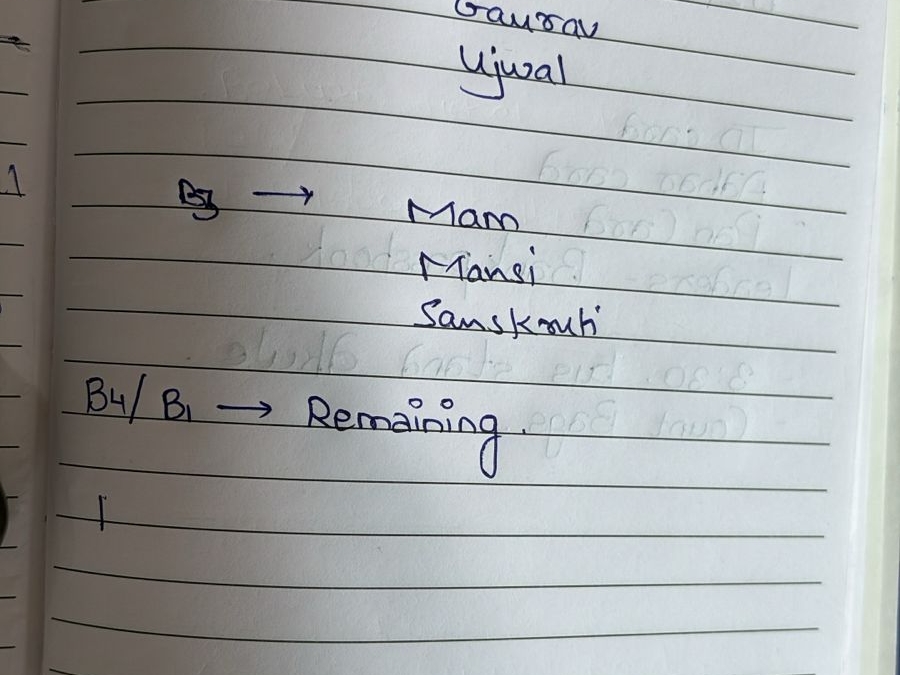 Gaurav
Ujwal
B3 → Mam
Mansi
Sanskruti
B4/ B1 → Remaining.